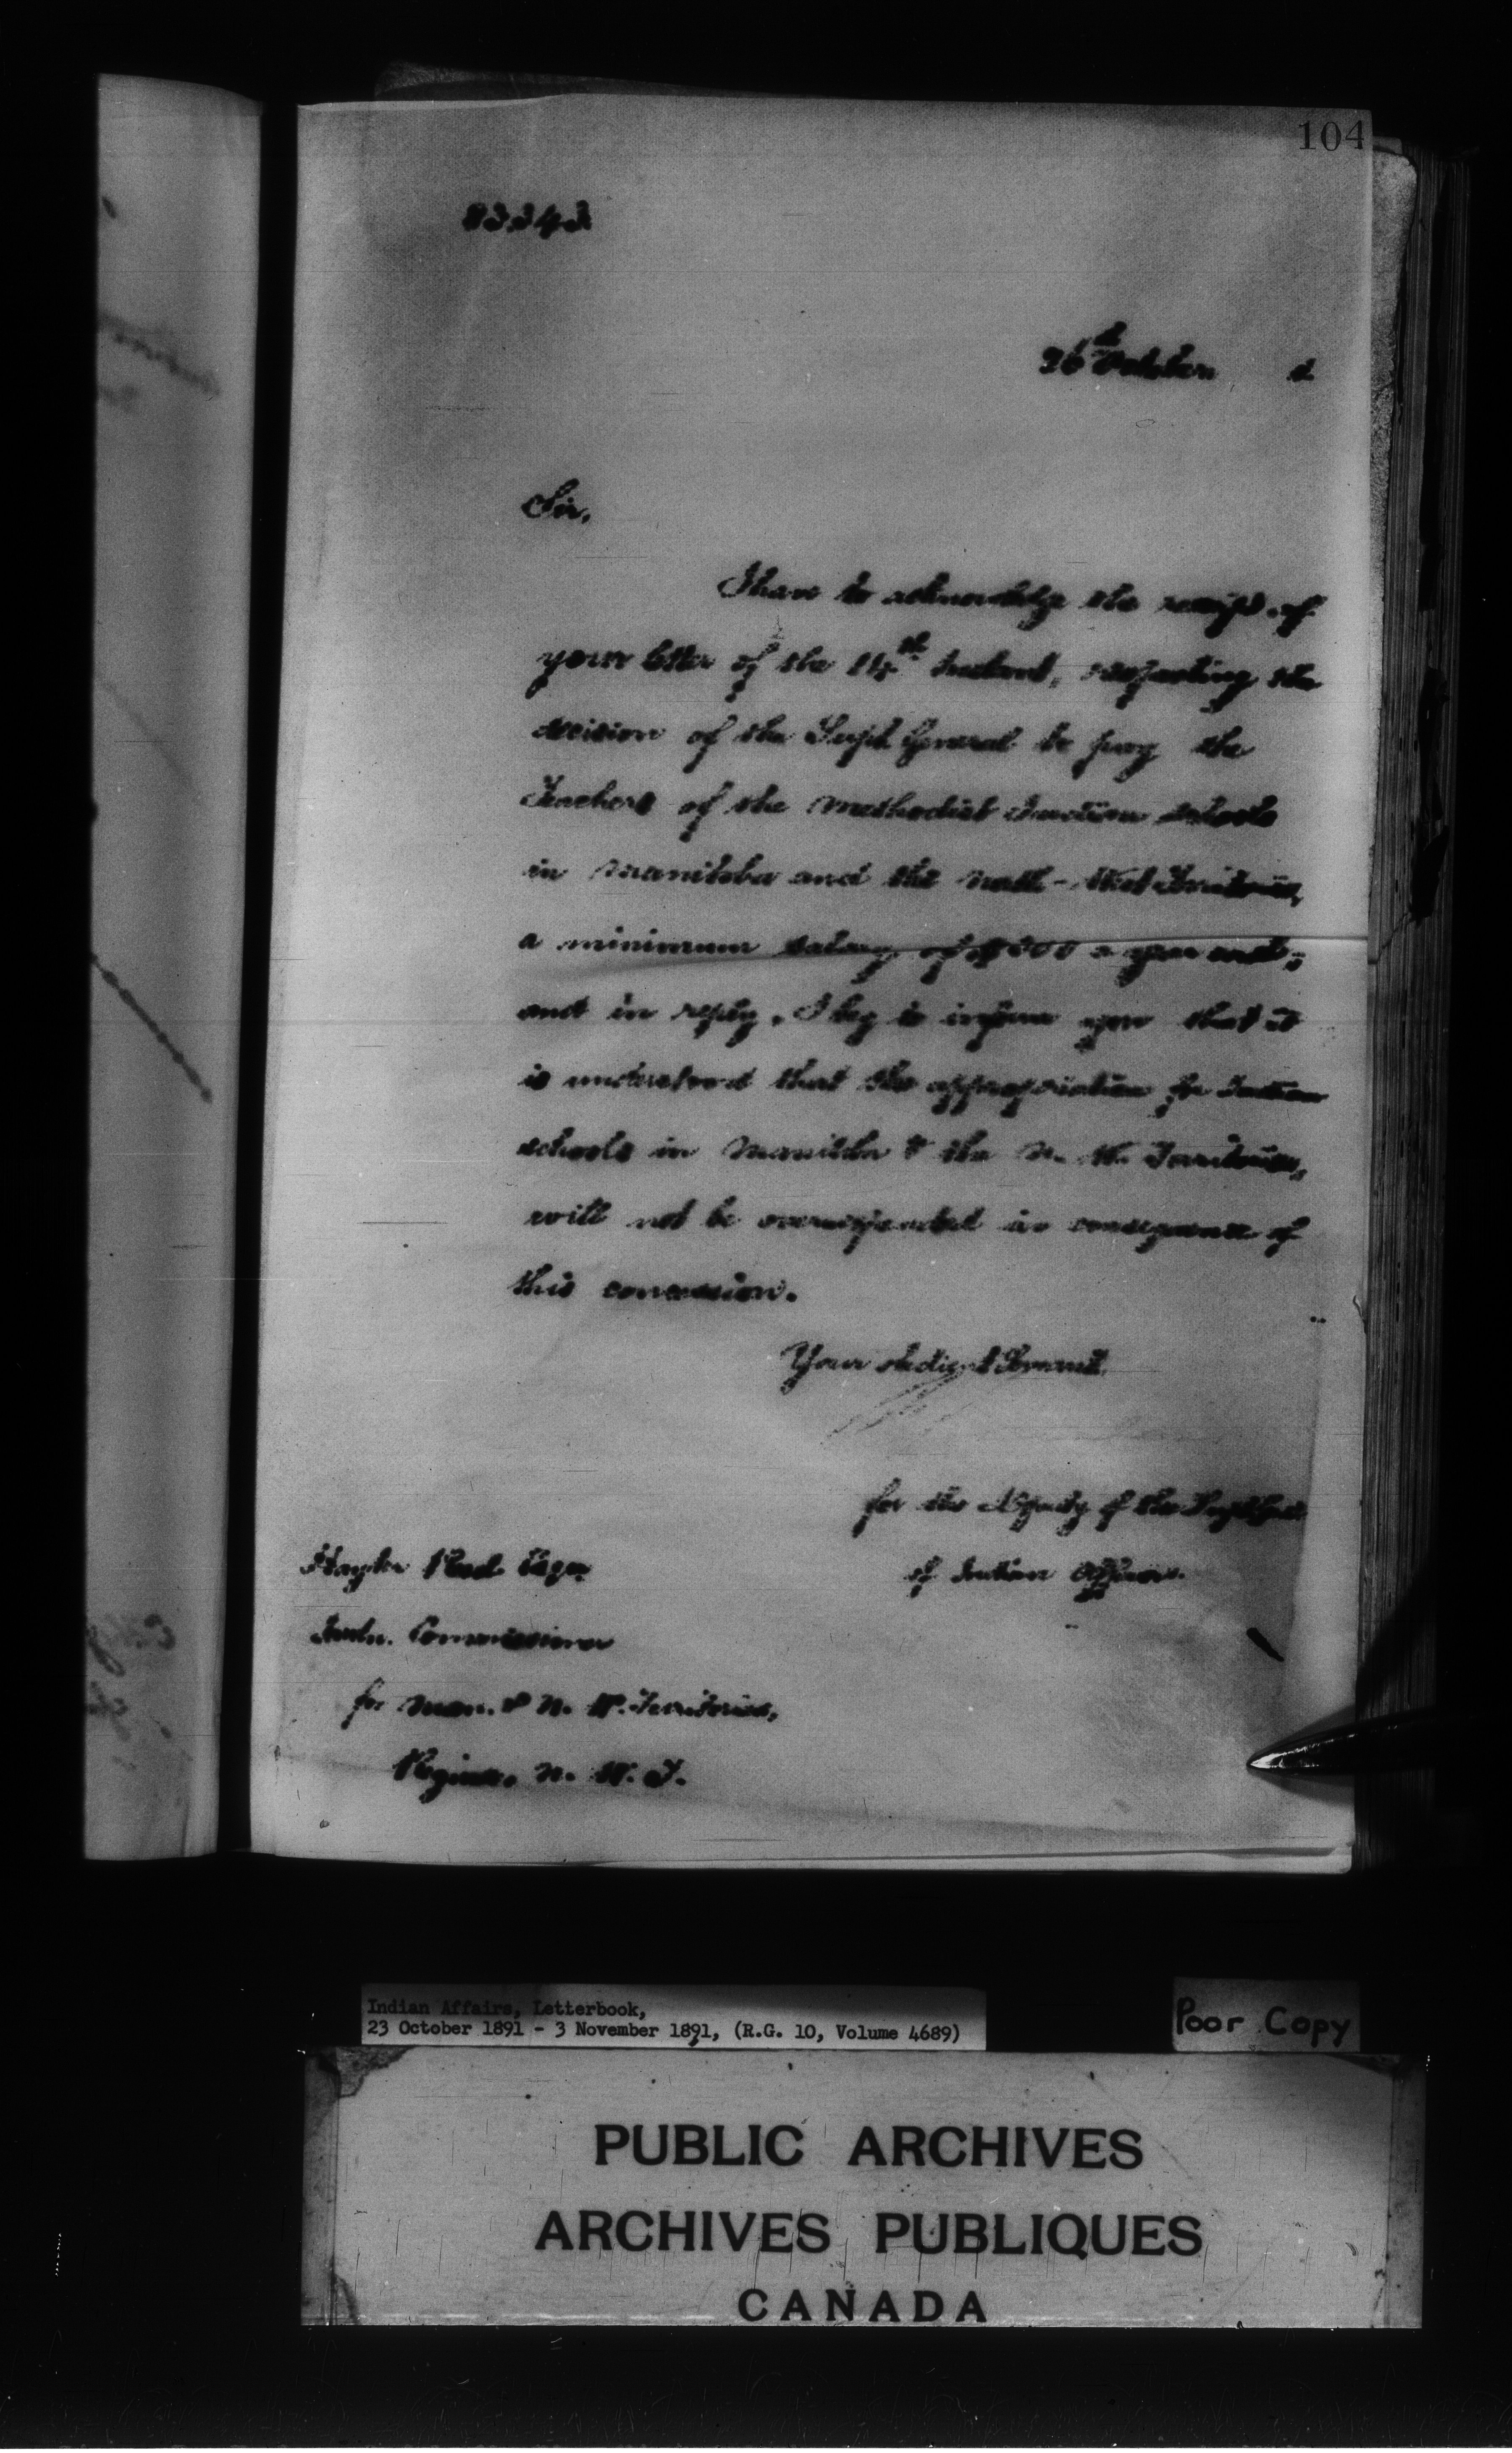 104
83343
26th October 1
Sir,
I have to acknowledge the receipt of
your letter of the 14th Instant, respecting the
decision of the Supt. General to pay the
Teachers of the Methodist Indian Schools
in Manitoba and the North-West Territories,
a minimum salary of $300 a year each;
and in reply, I beg to inform you that it
is understood that the appropriation for Indian
schools in Manitoba & the N. W. Territories,
will not be overexpended in consequence of
this concession.
Your obedient Servant.
for the Deputy of the Supt. Genl.
of Indian Affairs.
Hayter Reed Esqr.
Indn. Commissioner
for Man. & N. W. Territories,
Regina, N. W. T.
Indian Affairs, Letterbook,
23 October 1891 - 3 November 1891, (R.G. 10, Volume 4689)
Poor Copy
PUBLIC ARCHIVES
ARCHIVES PUBLIQUES
CANADA